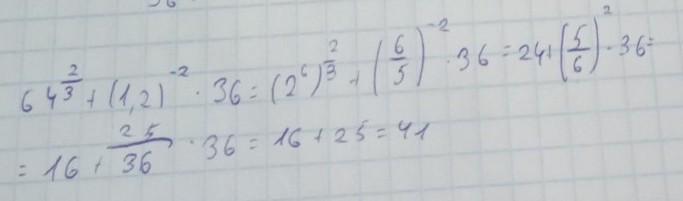 64^{2/3} + (1,2)^{-2} · 36 = (2^6)^{2/3} + (6/5)^{-2} · 36 = 24 + (5/6)^2 · 36 =
= 16 + 25/36 · 36 = 16 + 25 = 41